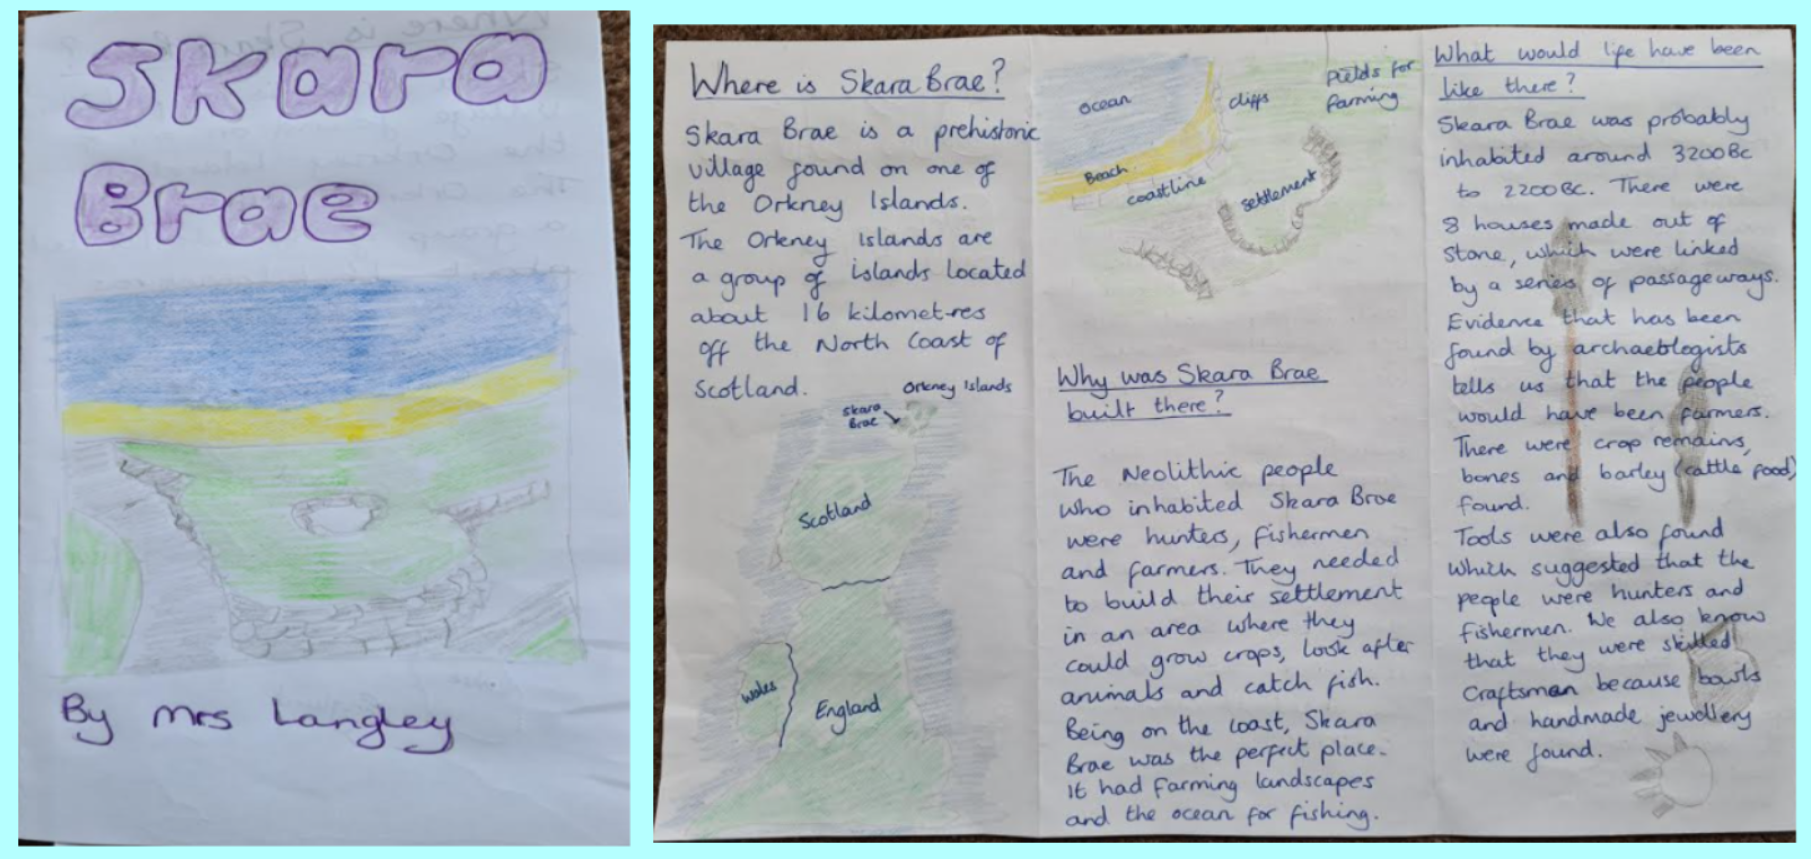 Skara
Brae
By Mrs Langley
Where is Skara Brae?
Skara Brae is a prehistoric
village found on one of
the Orkney Islands.
The Orkney Islands are
a group of islands located
about 16 kilometres
off the North Coast of
Scotland.
Orkney Islands
Skara
Brae
Scotland
Wales
England
ocean
cliffs
Fields for
farming
Beach
coastline
settlement
Why was Skara Brae
built there?
The Neolithic people
who inhabited Skara Brae
were hunters, fishermen
and farmers. They needed
to build their settlement
in an area where they
could grow crops, look after
animals and catch fish.
Being on the coast, Skara
Brae was the perfect place.
It had farming landscapes
and the ocean for fishing.
What would life have been
like there?
Skara Brae was probably
inhabited around 3200BC
to 2200BC. There were
8 houses made out of
stone, which were linked
by a series of passageways.
Evidence that has been
found by archaeologists
tells us that the people
would have been farmers.
There were crop remains,
bones and barley (cattle food)
found.
Tools were also found
which suggested that the
people were hunters and
fishermen. We also know
that they were skilled
Craftsmen because bowls
and handmade jewellery
were found.